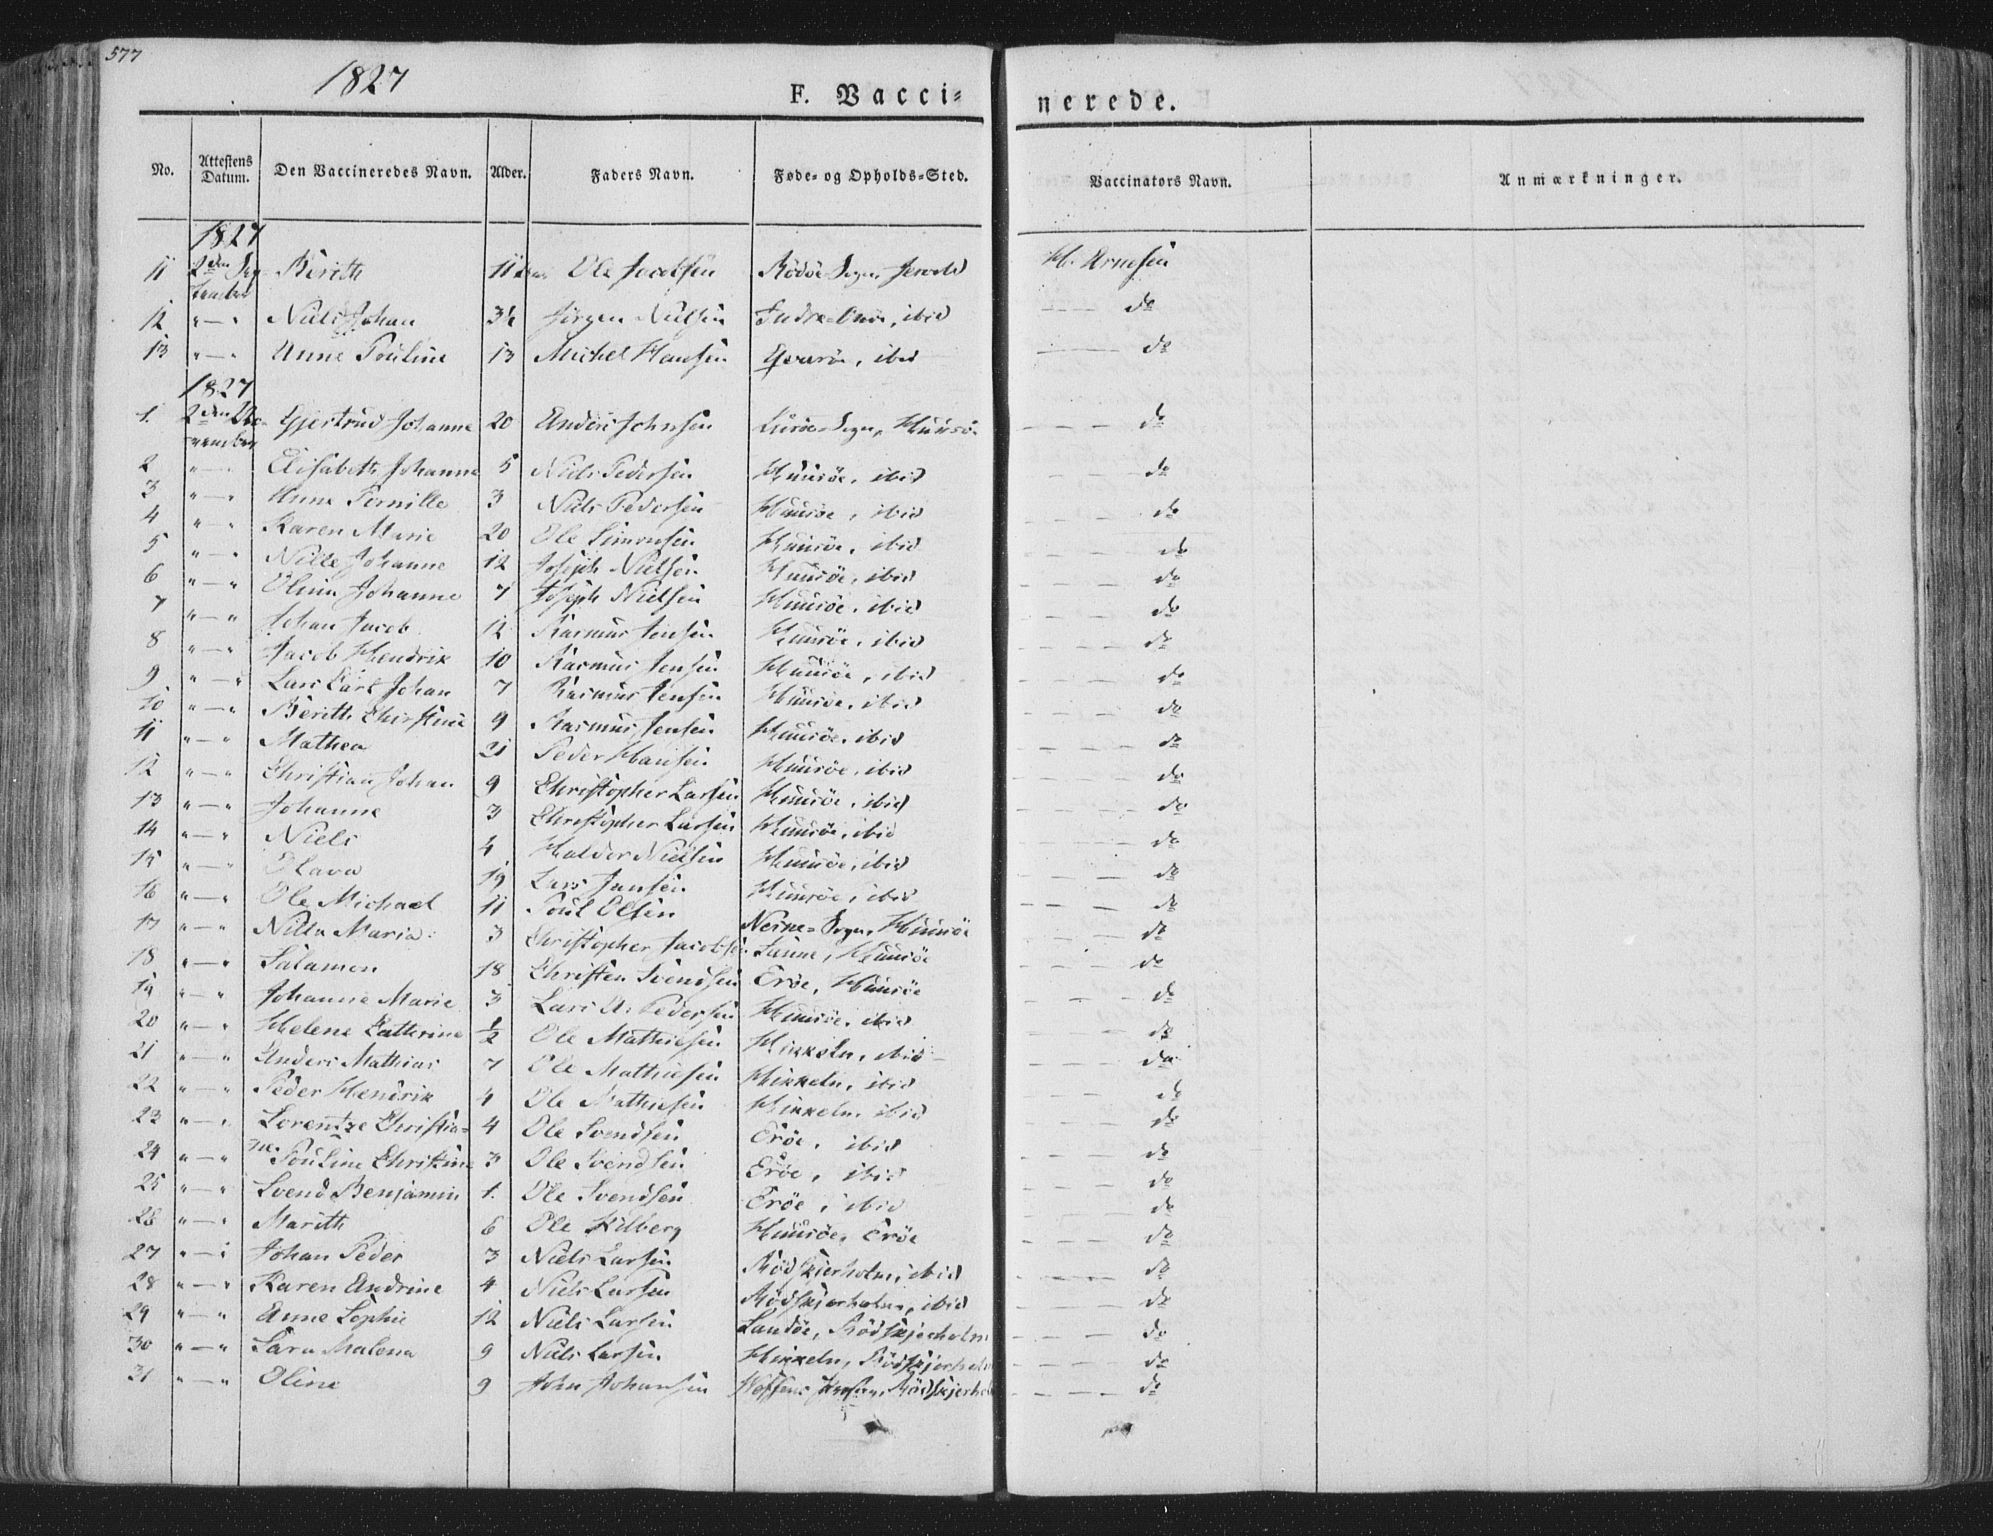 577
1827
F. Vacci=
nerede.
No. Attestens Datum. Den Vaccineredes Navn. Alder. Faders Navn. Føde- og Opholds-Sted. Vaccinators Navn. Anmærkninger.
1827
11 2den Sep- Berith 11 Ole Jacobsen Rödöe Sogn, H. Arnesen
tember
12 " — " Niels Johan 3½ Jörgen Nielsen Indre- ibid — — do
13 " — " Anne Pouline 13 Michel Hansen ibid — — do
1827
1. 2den No- Gjertrud Johanne 20 Anders Johnsen Luröe-Sogn, Huusöe — — — do
vember
2 " — " Elisabeth Johanne 5 Niels Pedersen Huusöe, ibid — — do
3 " — " Anne Pernille 3 Niels Pedersen Huusöe, ibid — — — do
4 " " Karen Marie 20 Ole Simonsen Huusöe, ibid — — — do
5 " — " Nille Johanne 12 Joseph Nielsen Huusöe, ibid — — — do
6 " — " Olina Johanne 7 Joseph Nielsen Huusöe, ibid — — — do
7 " — " Johan Jacob 12 Rasmus Jensen Huusöe, ibid — — — do
8 " — " Jacob Hendrik 10 Rasmus Jensen Huusöe, ibid — — — do
9 " — " Lars Carl Johan 7 Rasmus Jensen Huusöe, ibid — — — do
10 " — " Berith Christine 9 Rasmus Jensen Huusöe, ibid — — — do
11 " — " Mathea 21 Peder Hansen Huusöe, ibid — — — do
12 " — " Christian Johan 9 Christopher Larsen Huusöe, ibid — — — do
13 " — " Johanne 3 Christopher Larsen Huusöe, ibid — — — do
14 " — " Niels 4 Haldor Nielsen Huusöe, ibid — — — do
15 " — " Olava 19 Lars Jensen Huusöe, ibid — — — do
16 " — " Ole Michael 11 Poul Olsen Nesne-Sogn, Huusöe — — — do
17 " — " Nilla Maria 3 Christopher Jacobsen Huusöe — — do
18 " — " Salamon 18 Christen Svendsen Eröe, Huusöe — — — do
19 " — " Johanne Marie 3 Lars A. Pedersen Huusöe, ibid — — — do
20 " — " Helene Cathrine ½ Ole Mathiesen Hikkeln, ibid — — — do
21 " — " Anders Mathias 7 Ole Mathiesen Hikkeln, ibid — — — do
22 " — " Peder Hendrik 4 Ole Mathiesen Hikkeln, ibid — — — do
23 " — " Lorentze Christia= 4 Ole Svendsen Eröe, ibid — — — do
24 " — " ne Pouline Christine 3 Ole Svendsen Eröe, ibid — — — do
25 " — " Svend Benjamin 1. Ole Svendsen Eröe, ibid — — — do
26 " — " Marith 6 Ole Kilberg Huusöe, Eröe — — — do
27 " — " Johan Peder 3 Niels Larsen Rödskjerholm, ibid — — — do
28 " — " Karen Andrine 4 Niels Larsen Rödskjerholm, ibid — — — do
29 " — " Anne Sophie 12 Niels Larsen Rödskjerholm — — — do
30 " — " Sara Malena 9 Niels Larsen Hikkeln, Rödskjerholm — — — do
31 " — " Oline 9 John Johansen Rödskjerhol — — — do